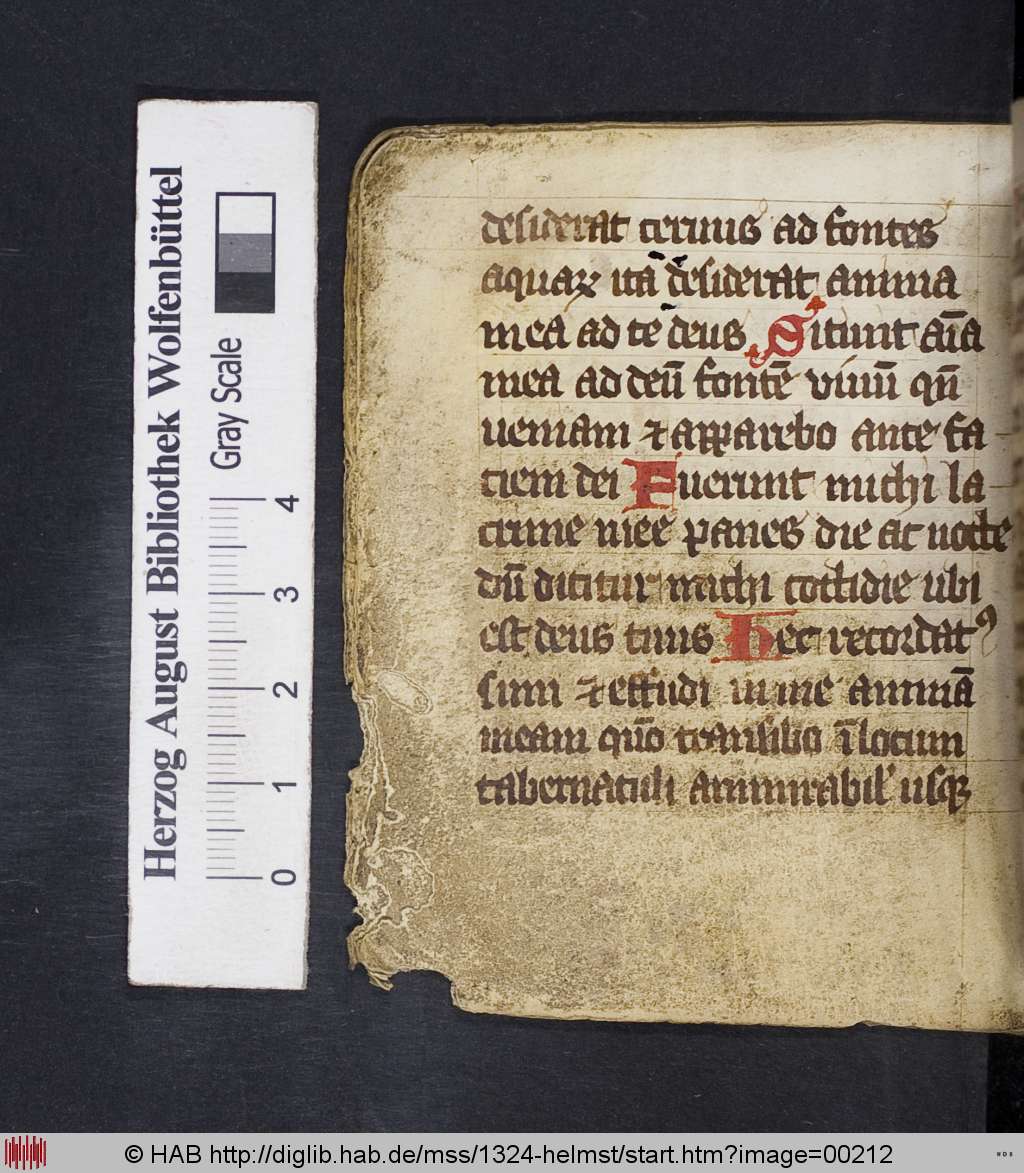 Herzog August Bibliothek Wolfenbüttel
Gray Scale
0 1 2 3 4
desiderat ceruus ad fontes
aquaꝝ ita desiderat anima
mea ad te deus Sitiunt aīa
mea ad deū fontē viuū qn̄
ueniam ⁊ apparebo ante fa
ciem dei Fuerunt michi la
crime mee panes die ac nocte
dū dicitur michi cottidie ubi
est deus tuus Hec recordatꝰ
sum ⁊ effudi in me animā
meam qm̄ transibo ī locum
tabernaculi ammirabil' usqꝫ
© HAB http://diglib.hab.de/mss/1324-helmst/start.htm?image=00212